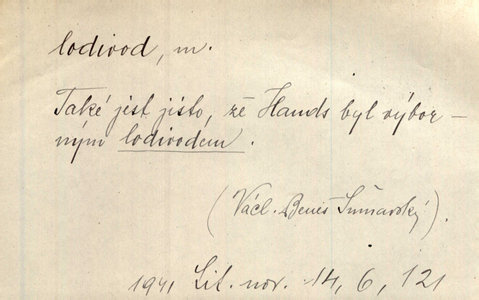 lodivod, m.
Také jest jisto, že Hands byl výbor-
ným lodivodem.
(Václ. Beneš Šumavský).
1941 Lit. nov. 14, 6, 121